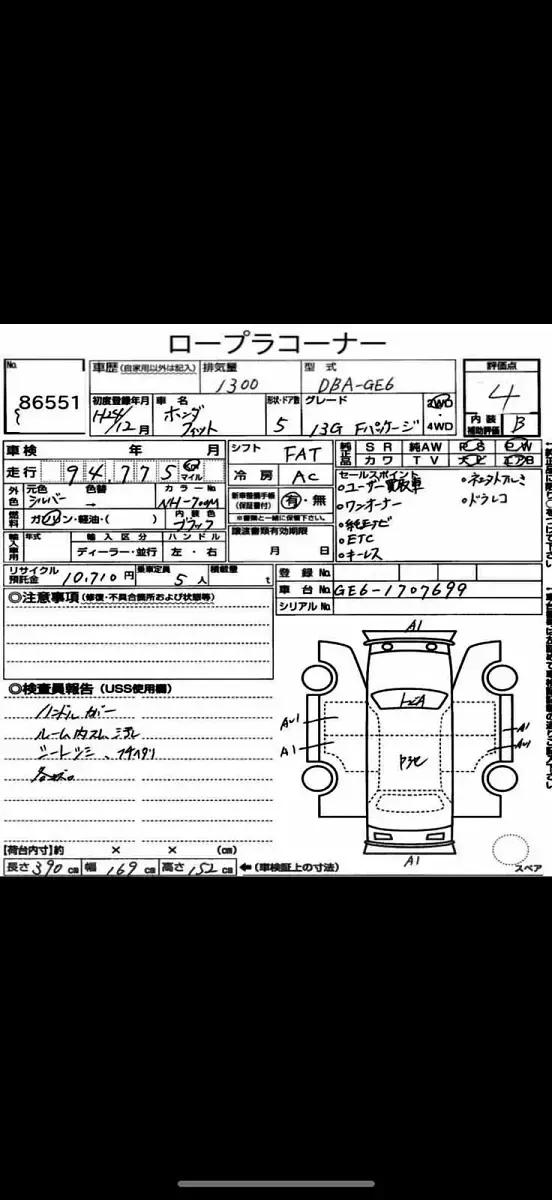 ロープラコーナー
No. 86551
車歴 (自家用以外は記入) 排気量 1300 型式 DBA-GE6 評価点 4
初度登録年月 H24/12月 車名 ホンダ フィット 形状・ドア数 5 グレード 13G Fパッケージ 2WD・4WD 内装補助評価 B
車検 年 月 シフト FAT 純正品 SR 純AW PS PW
走行 94,775 km マイル 冷房 AC カワ TV
外色 元色 シルバー 色替 → カラーNo. NH-700M 新車整備手帳(保証書付) 有・無
※書類と一緒に保管下さい。
燃料 ガソリン・軽油・( ) 内装色 ブラック 譲渡書類有効期限
輸入車用 年式 輸入区分 ディーラー・並行 ハンドル 左・右 月 日
セールスポイント
。ユーザー買取車
。ワンオーナー
。純正ナビ
。ETC
。キーレス
。ドラレコ
リサイクル預託金 10,710円 乗車定員 5人 積載量 t 登録No.
車台No. GE6-1707699
シリアルNo.
◎注意事項 (修復・不具合箇所および状態等)
◎検査員報告 (USS使用欄)
ハンドルカバー
シートシミ、
【荷台内寸】約 × × (cm)
長さ 390 cm 幅 169 cm 高さ 152 cm ←(車検証上の寸法)
A1
A1
A1
A1
スペア